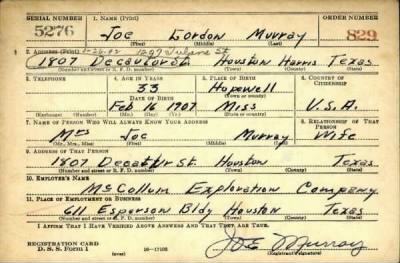 SERIAL NUMBER 1. NAME (Print) ORDER NUMBER
5276 Joe Gordon Murray 829
(First) (Middle) (Last)
2. ADDRESS (Print) 1-26-42 1207 St.
1807 Decatur St. Houston Harris Texas
(Number and street or R. F. D. number) (Town) (County) (State)
3. TELEPHONE 4. AGE IN YEARS 5. PLACE OF BIRTH 6. COUNTRY OF CITIZENSHIP
33 Hopewell
DATE OF BIRTH (Town or county)
Feb 16 1907 Miss U.S.A.
(Exchange) (Number) (Mo.) (Day) (Yr.) (State or country)
7. NAME OF PERSON WHO WILL ALWAYS KNOW YOUR ADDRESS 8. RELATIONSHIP OF THAT PERSON
Mrs Joe Murray Wife
(Mr., Mrs., Miss) (First) (Middle) (Last)
9. ADDRESS OF THAT PERSON
1807 Decatur St. Houston Texas
(Number and street or R. F. D. number) (Town) (County) (State)
10. EMPLOYER'S NAME
McCollum Exploration Company
11. PLACE OF EMPLOYMENT OR BUSINESS
611 Esperson Bldg Houston Texas
(Number and street or R. F. D. number) (Town) (County) (State)
I AFFIRM THAT I HAVE VERIFIED ABOVE ANSWERS AND THAT THEY ARE TRUE.
REGISTRATION CARD
D. S. S. Form 1 (over) 16-17105 Joe Murray
(Registrant's signature)